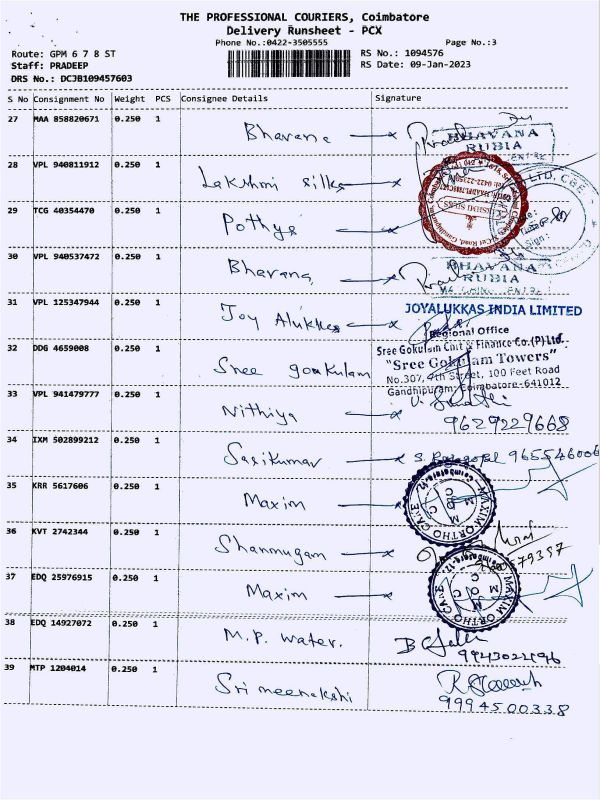 THE PROFESSIONAL COURIERS, Coimbatore
Delivery Runsheet - PCX
Phone No.:0422-3505555 Page No.:3
Route: GPM 6 7 8 ST RS No.: 1094576
Staff: PRADEEP RS Date: 09-Jan-2023
DRS No.: DCJB109457603
S No Consignment No Weight PCS Consignee Details Signature
27 MAA 858820671 0.250 1 Bhavana
BHAVANA
RUBIA
28 VPL 940811912 0.250 1 Lakshmi silks
29 TCG 40354470 0.250 1 Pothys
30 VPL 940537472 0.250 1 Bhavana
BHAVANA
RUBIA
31 VPL 125347944 0.250 1 Joy Alukkas
JOYALUKKAS INDIA LIMITED
Regional Office
32 DDG 4659008 0.250 1 Sree goakulam
Sree Gokulam Chit & Finance Co.(P) Ltd.
"Sree Gokulam Towers"
No.307, 4th Street, 100 Feet Road
Gandhipuram, Coimbatore-641012
33 VPL 941479777 0.250 1 Nithiya
9629229668
34 IXM 502899212 0.250 1 Sasikumar 965546006
35 KRR 5617606 0.250 1 Maxim
MAXIM ORTHO CARE
36 KVT 2742344 0.250 1 Shanmugam
37 EDQ 25976915 0.250 1 Maxim
MAXIM ORTHO CARE
38 EDQ 14927072 0.250 1 M.P. water.
39 MTP 1204014 0.250 1 Sri meenakshi
9994500338